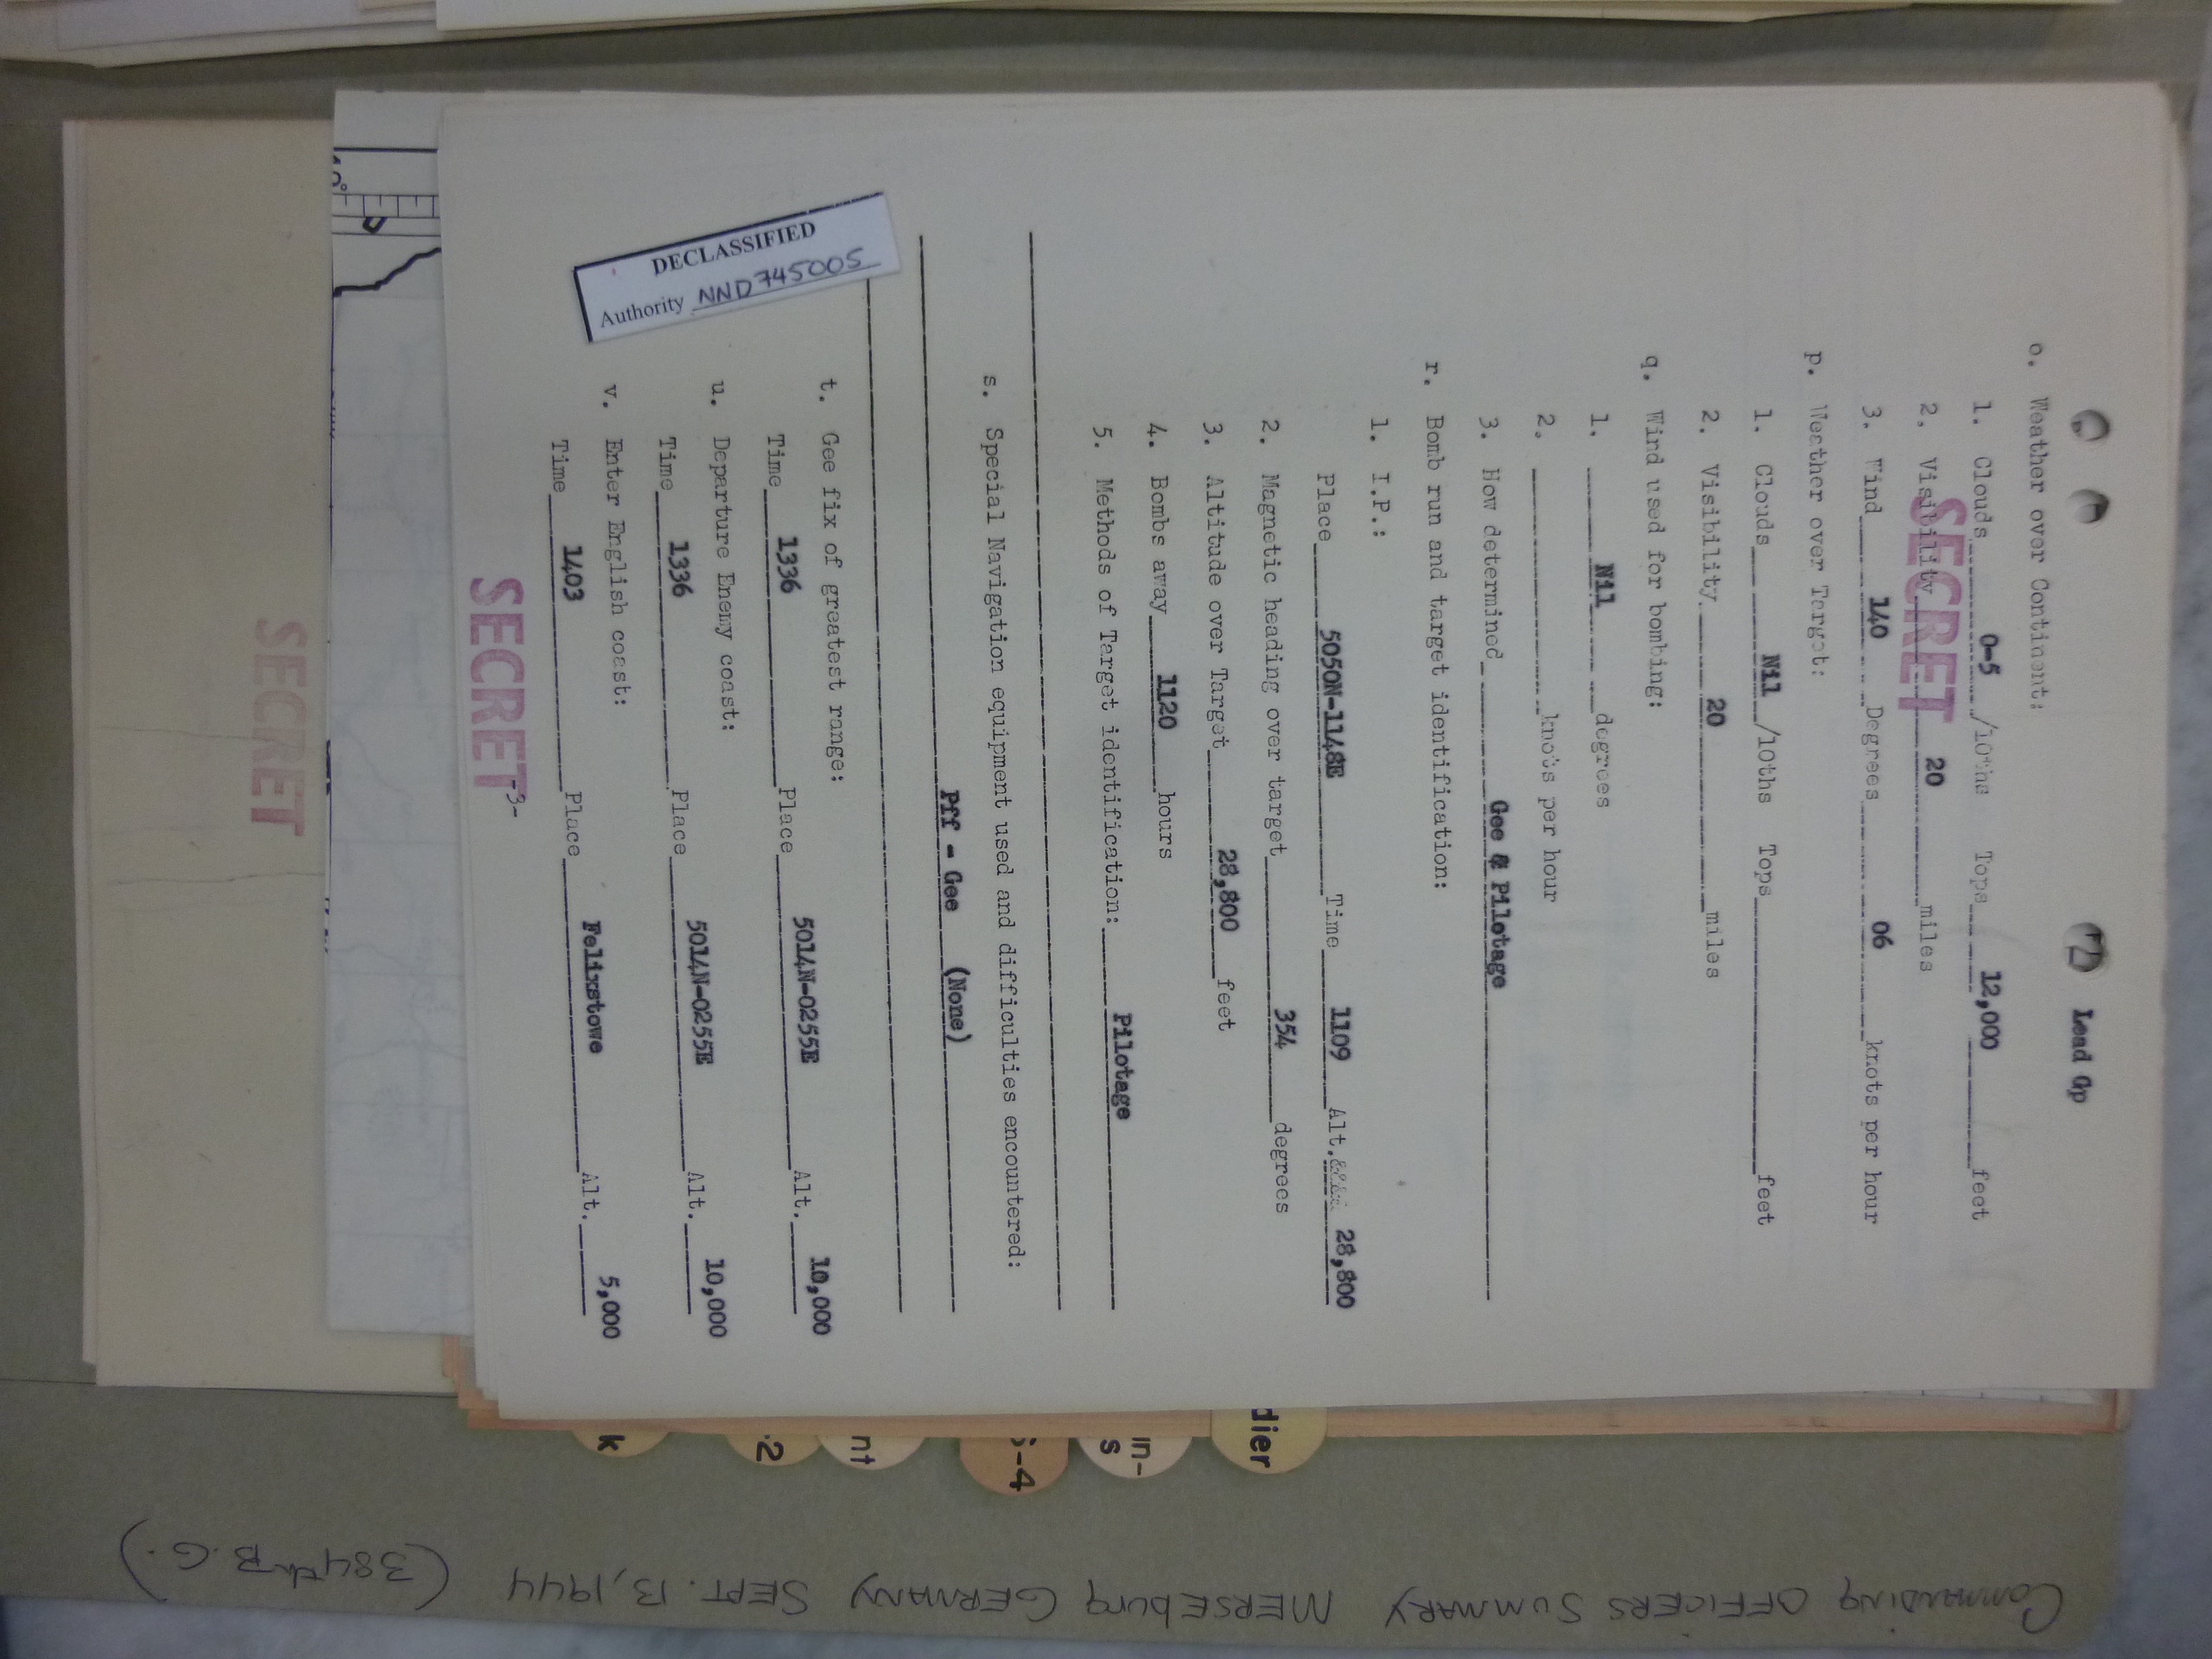 Lead Gp
SECRET
o. Weather over Continent:
1. Clouds 0-5 /10ths Tops 12,000 feet
2. Visibility 20 miles
3. Wind 140 Degrees 06 knots per hour
p. Weather over Target:
1. Clouds Nil /10ths Tops feet
2. Visibility 20 miles
q. Wind used for bombing:
1. Nil degrees
2. knots per hour
3. How determined Gee & Pilotage
r. Bomb run and target identification:
1. I.P.:
Place 5050N-1148E Time 1109 Alt. 28,800
2. Magnetic heading over target 354 degrees
3. Altitude over Target 28,800 feet
4. Bombs away 1120 hours
5. Methods of Target identification: Pilotage
s. Special Navigation equipment used and difficulties encountered:
Pff - Gee (None)
t. Gee fix of greatest range:
Time 1336 Place 5014N-0255E Alt. 10,000
u. Departure Enemy coast:
Time 1336 Place 5014N-0255E Alt. 10,000
v. Enter English coast:
Time 1403 Place Felixstowe Alt. 5,000
-3-
SECRET
DECLASSIFIED
Authority NND745005
SECRET
dier
in-
s
-4
nt
.2
k
COMMANDING OFFICERS SUMMARY MERSEBURG GERMANY SEPT. 13, 1944 (384th B.G.)